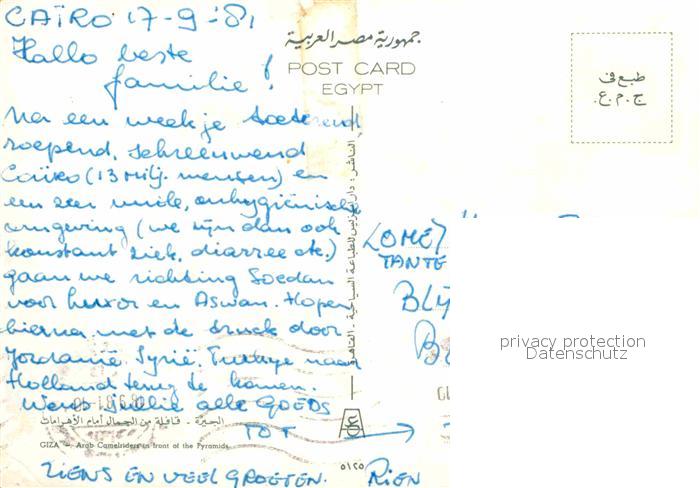 CAÏRO 17-9-'81
Hallo beste
familie!
Na een weekje toeterend
roepend, schreeuwend
Caïro (13 milj. mensen) en
een zeer vuile, onhygiënische
omgeving (we zijn dan ook
konstant ziek, diarree etc.)
gaan we richting Soedan
voor Luxor en Aswan. Hopen
hierna met de truck door
Jordanië, Syrië, Turkye naar
Holland terug te komen.
Wens jullie alle GOEDS
TOT →
ZIENS EN VEEL GROETEN. RIEN
الجيزة - قافلة من الجمال أمام الأهرامات
GIZA — Arab Camelriders in front of the Pyramids.
٥١٢٥
جمهورية مصر العربية
POST CARD
EGYPT
طبع فى
ج.م.ع.
TANTE
privacy protection
Datenschutz